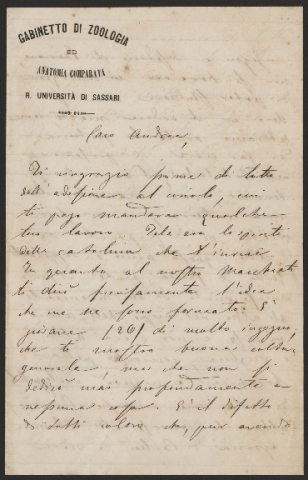 GABINETTO DI ZOOLOGIA
ED
ANATOMIA COMPARATA
R. UNIVERSITÀ DI SASSARI
Caro Andrea,
Ti ringrazio prima di tutto
dell'adesione al circolo, cui
ti prego mandare qualche
tuo lavoro. Tale era la risposta
della cartolina che t'inviai.
In quanto al nostro Macchiati
ti dirò pienamente l'idea
che me ne sono formato. È
giovane (26) di molto ingegno,
che ti mostra buona coltura
generale, ma che non si
dedicò mai profondamente a
nessuna cosa. È il difetto
di tutti coloro che, pur avendo